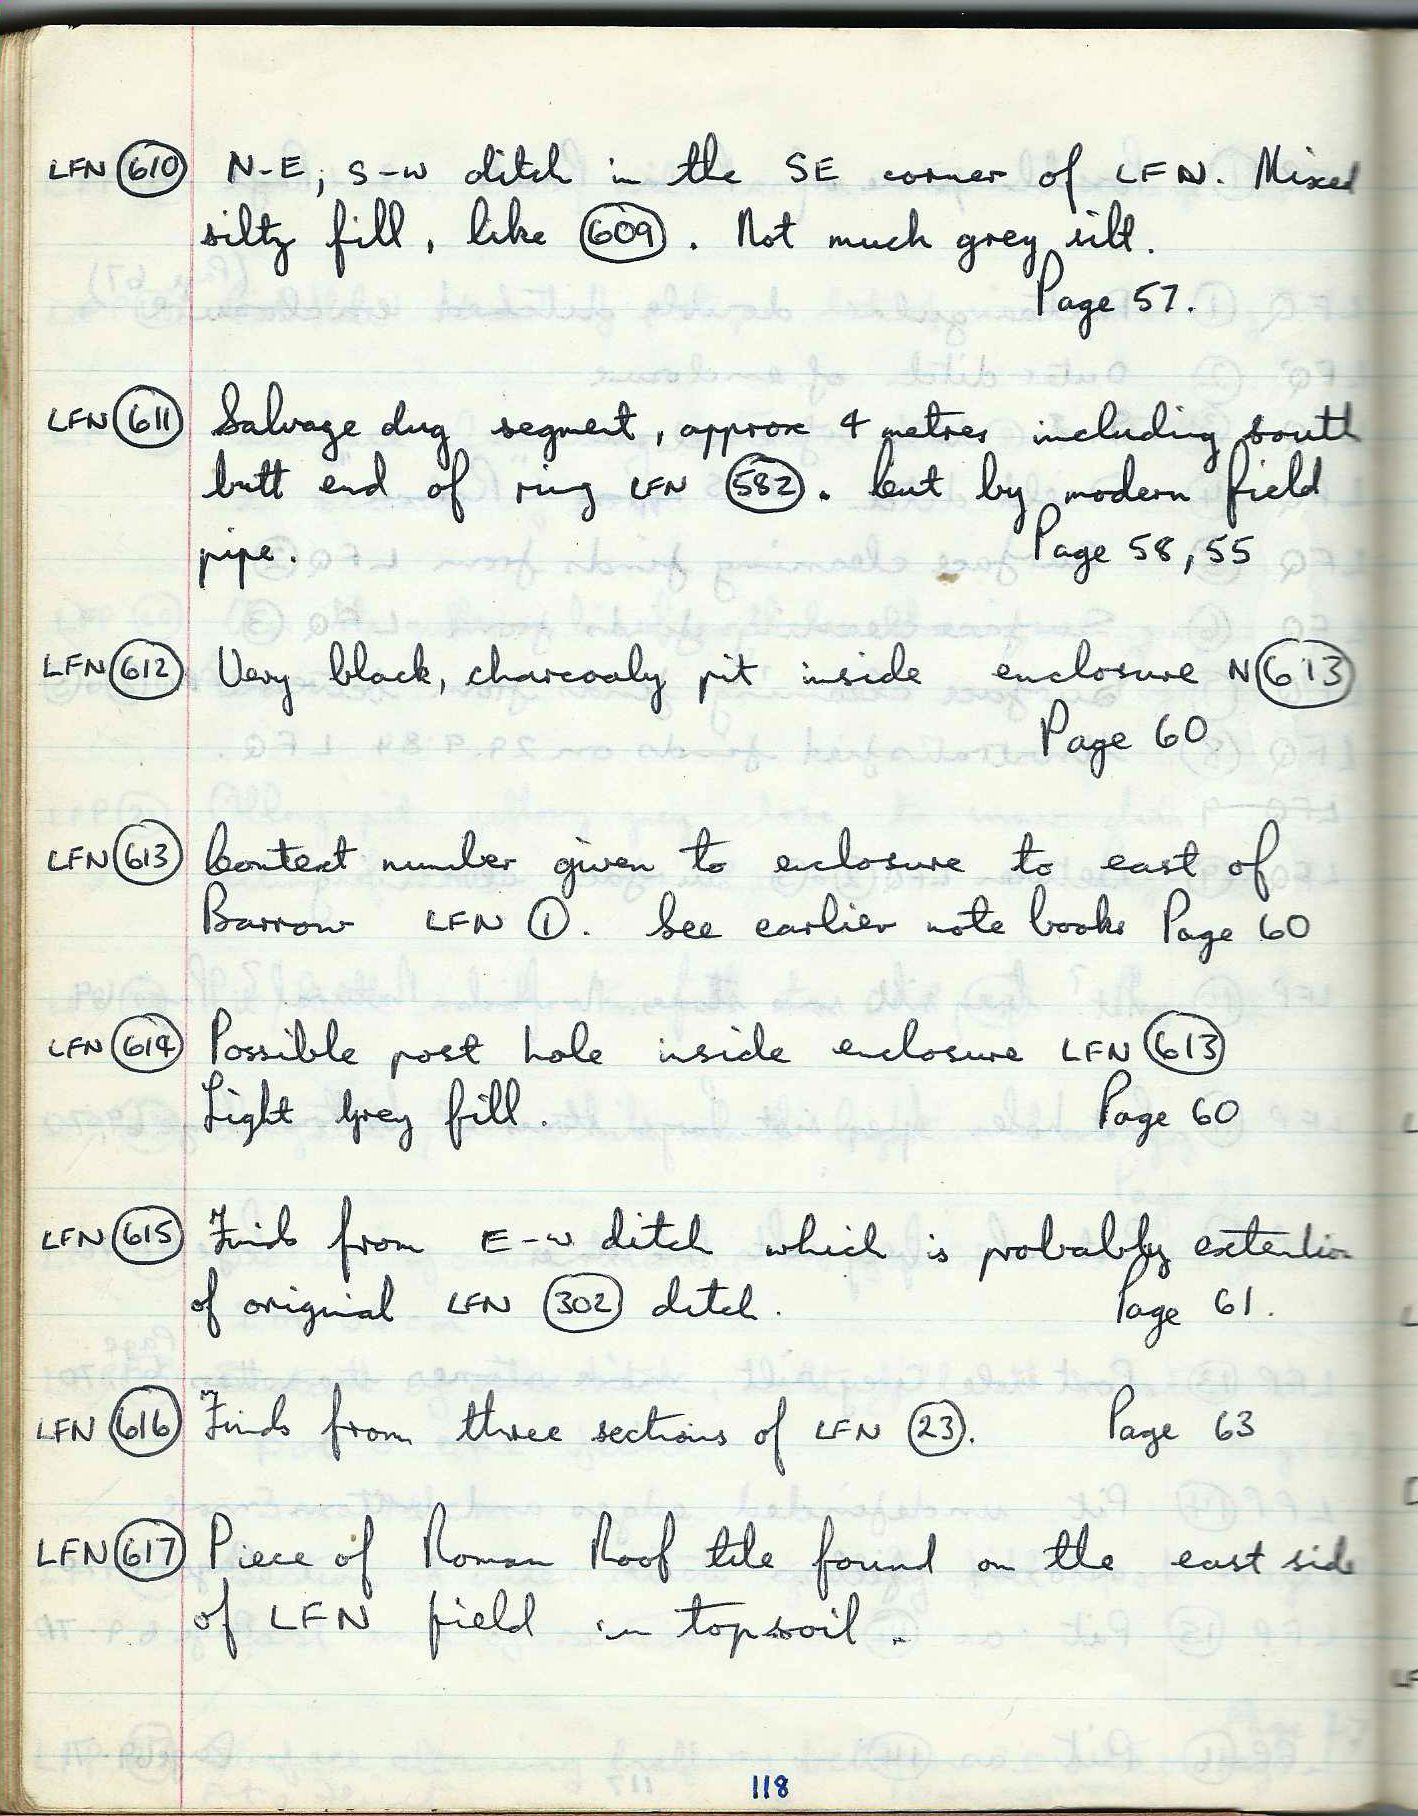 LFN (610) N-E, S-W ditch in the SE corner of LFN. Mixed
silty fill, like (609). Not much grey silt.
Page 57.
LFN (611) Salvage dug segment, approx 4 metres including south
butt end of ring LFN (582). Cut by modern field
pipe. Page 58, 55
LFN (612) Very black, charcoaly pit inside enclosure N (613)
Page 60
LFN (613) Context number given to enclosure to east of
Barrow LFN (1). See earlier note books Page 60
LFN (614) Possible post hole inside enclosure LFN (613)
Light Grey fill. Page 60
LFN (615) Finds from E-W ditch which is probably extention
of original LFN (302) ditch. Page 61.
LFN (616) Finds from three sections of LFN (23). Page 63
LFN (617) Piece of Roman Roof tile found on the east side
of LFN field in topsoil.
118